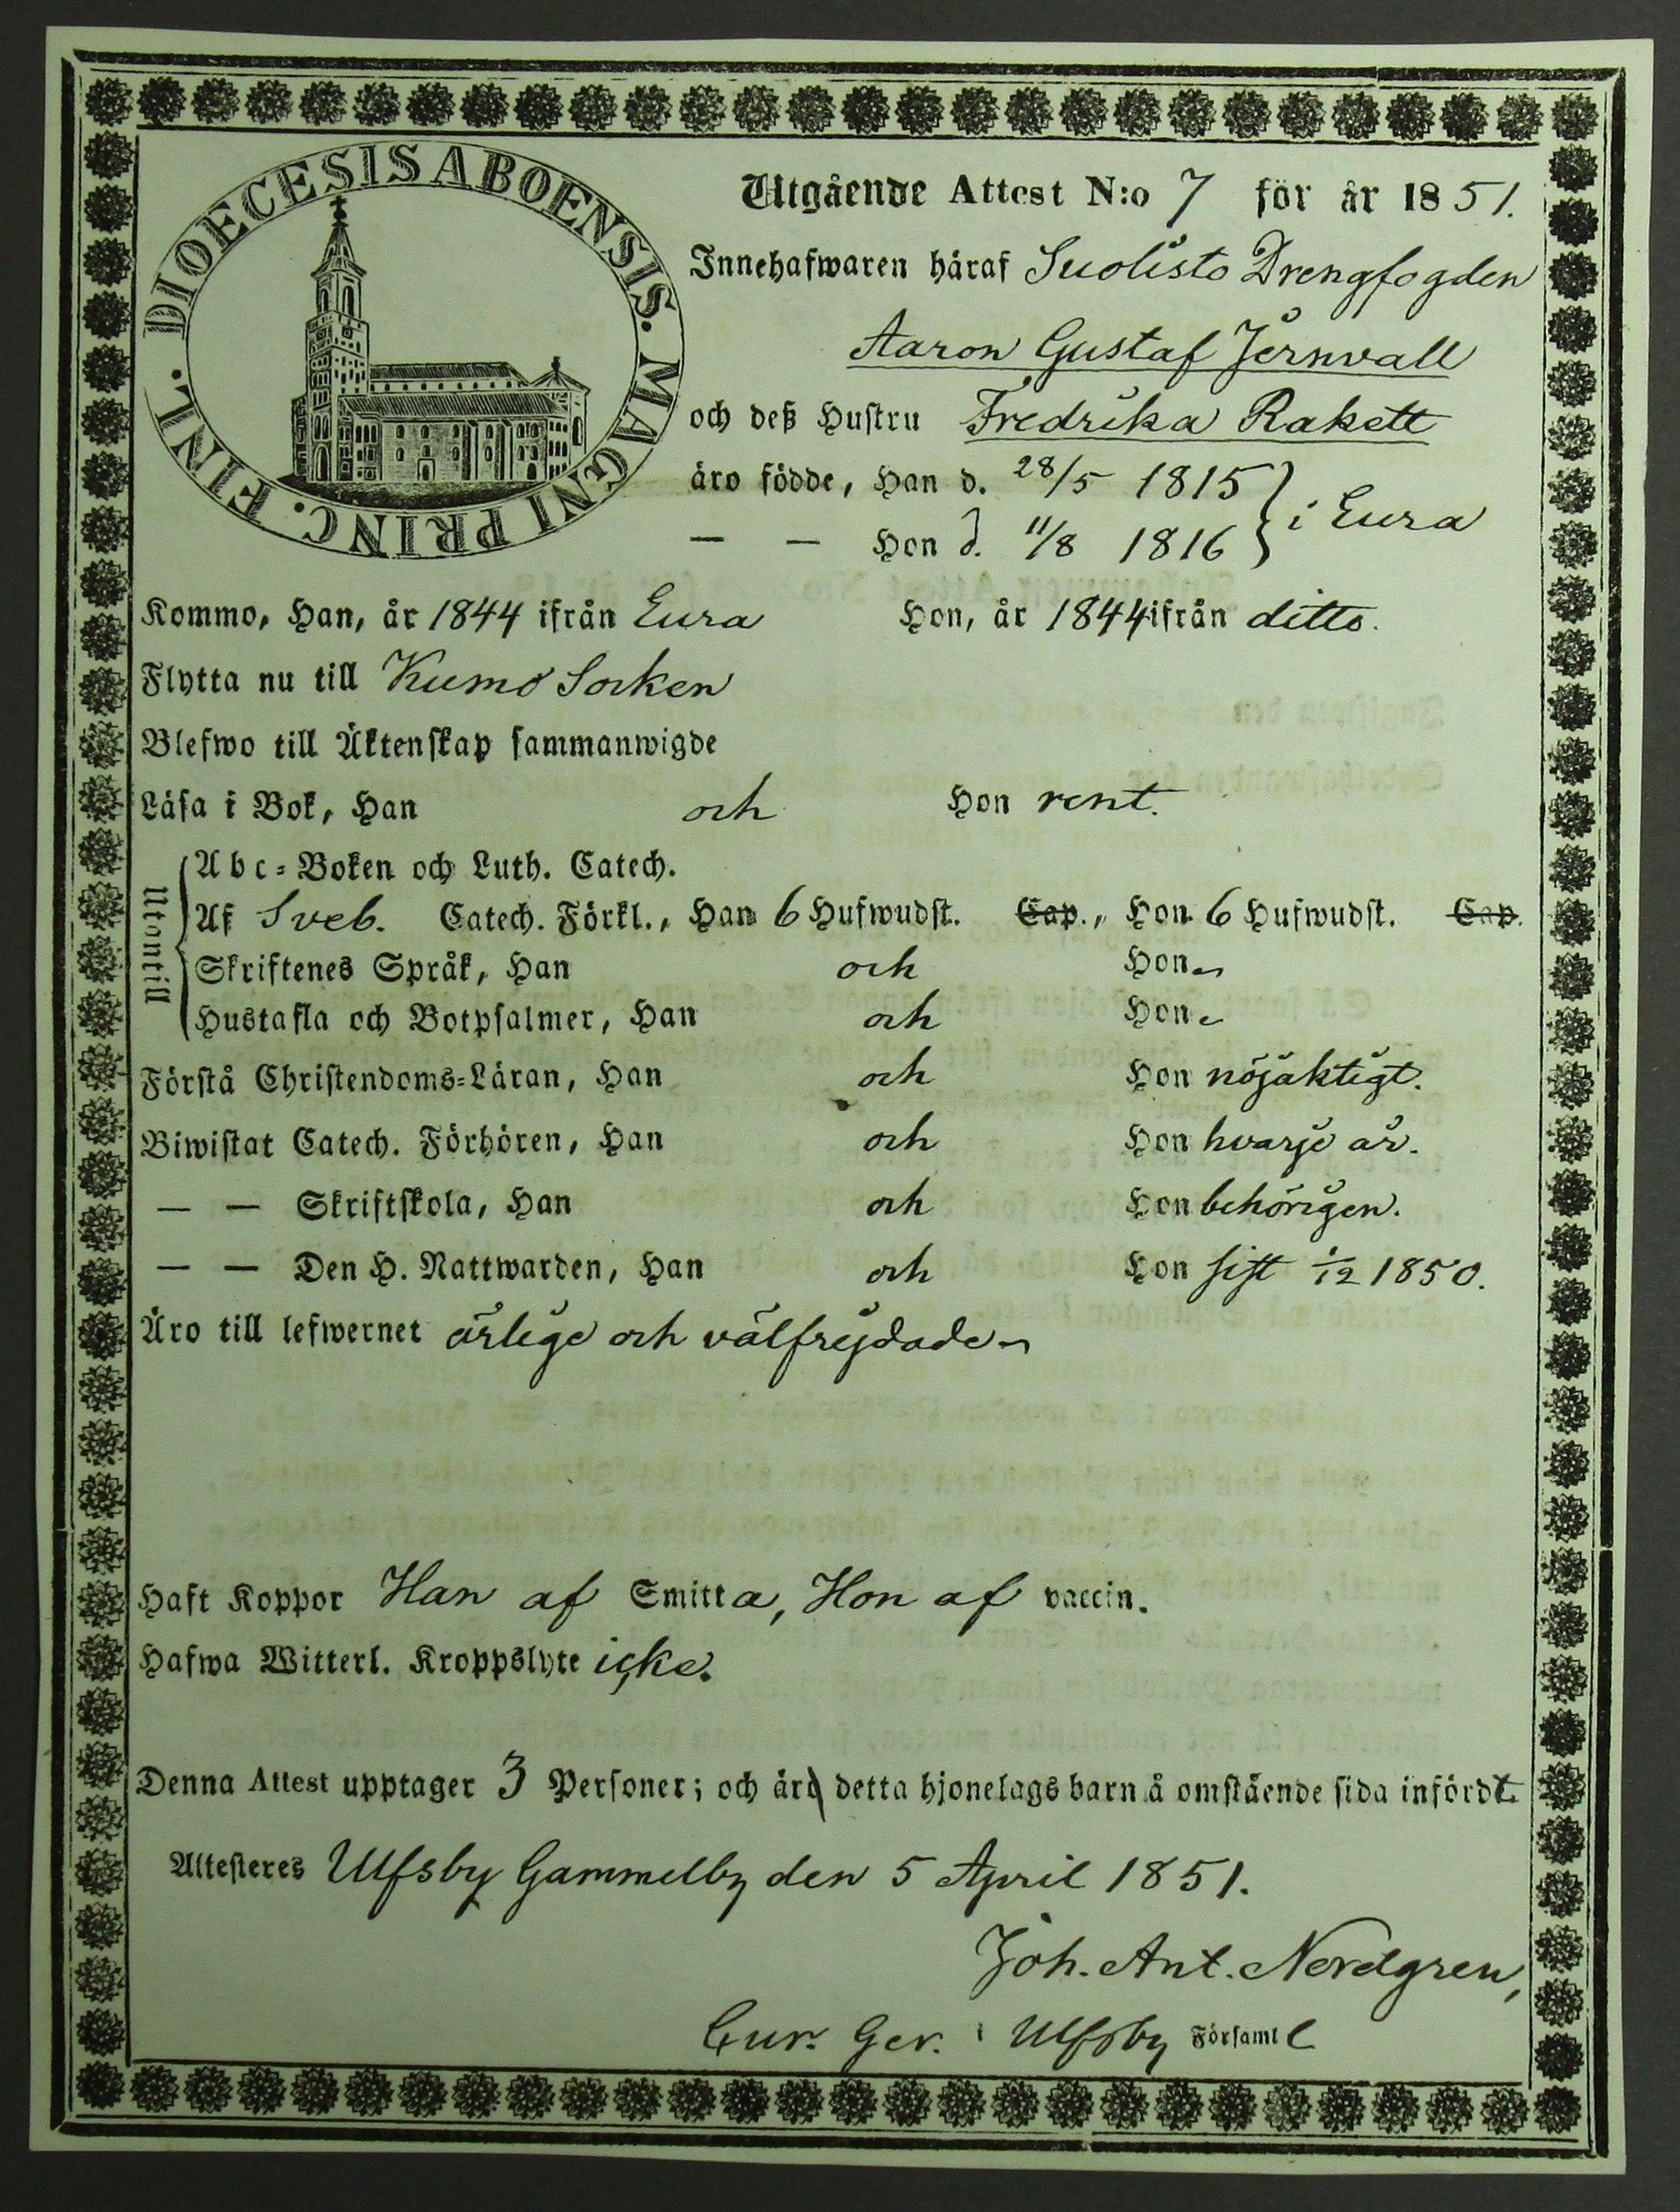 DIOECESIS ABOENSIS. MAGNI PRINC. FINL.
Utgående Attest N:o 7 för år 1851.
Innehafwaren häraf Suolisto Drengfogden
Aaron Gustaf Jernvall
och deß Hustru Fredrika Rakett
äro födde, Han d. 28/5 1815 } i Eura
— — Hon d. 11/8 1816
Kommo, Han, år 1844 ifrån Eura Hon, år 1844 ifrån ditto.
Flytta nu till Kumo Socken
Blefwo till Äktenskap sammanwigde
Läsa i Bok, Han och Hon rent.
Utantill
Abc-Boken och Luth. Catech.
Af Sveb. Catech. Förkl., Han 6 Hufwudst. Cap., Hon 6 Hufwudst. Cap.
Skriftenes Språk, Han och Hon
Hustafla och Botpsalmer, Han och Hon
Förstå Christendoms-Läran, Han och Hon nöjaktigt.
Biwistat Catech. Förhören, Han och Hon hvarje år.
— — Skriftskola, Han och Hon behörigen.
— — Den H. Nattwarden, Han och Hon sist 1/12 1850.
Äro till lefwernet ärlige och välfrejdade
Haft Koppor Han af Smitta, Hon af vaccin.
Hafwa Witterl. Kroppslyte icke.
Denna Attest upptager 3 Personer; och äro detta hjonelags barn å omstående sida infördt
Attesteres Ulfsby Gammelby den 5 April 1851.
Joh. Ant. Nordgren,
Cur. Ger. i Ulfsby Församl